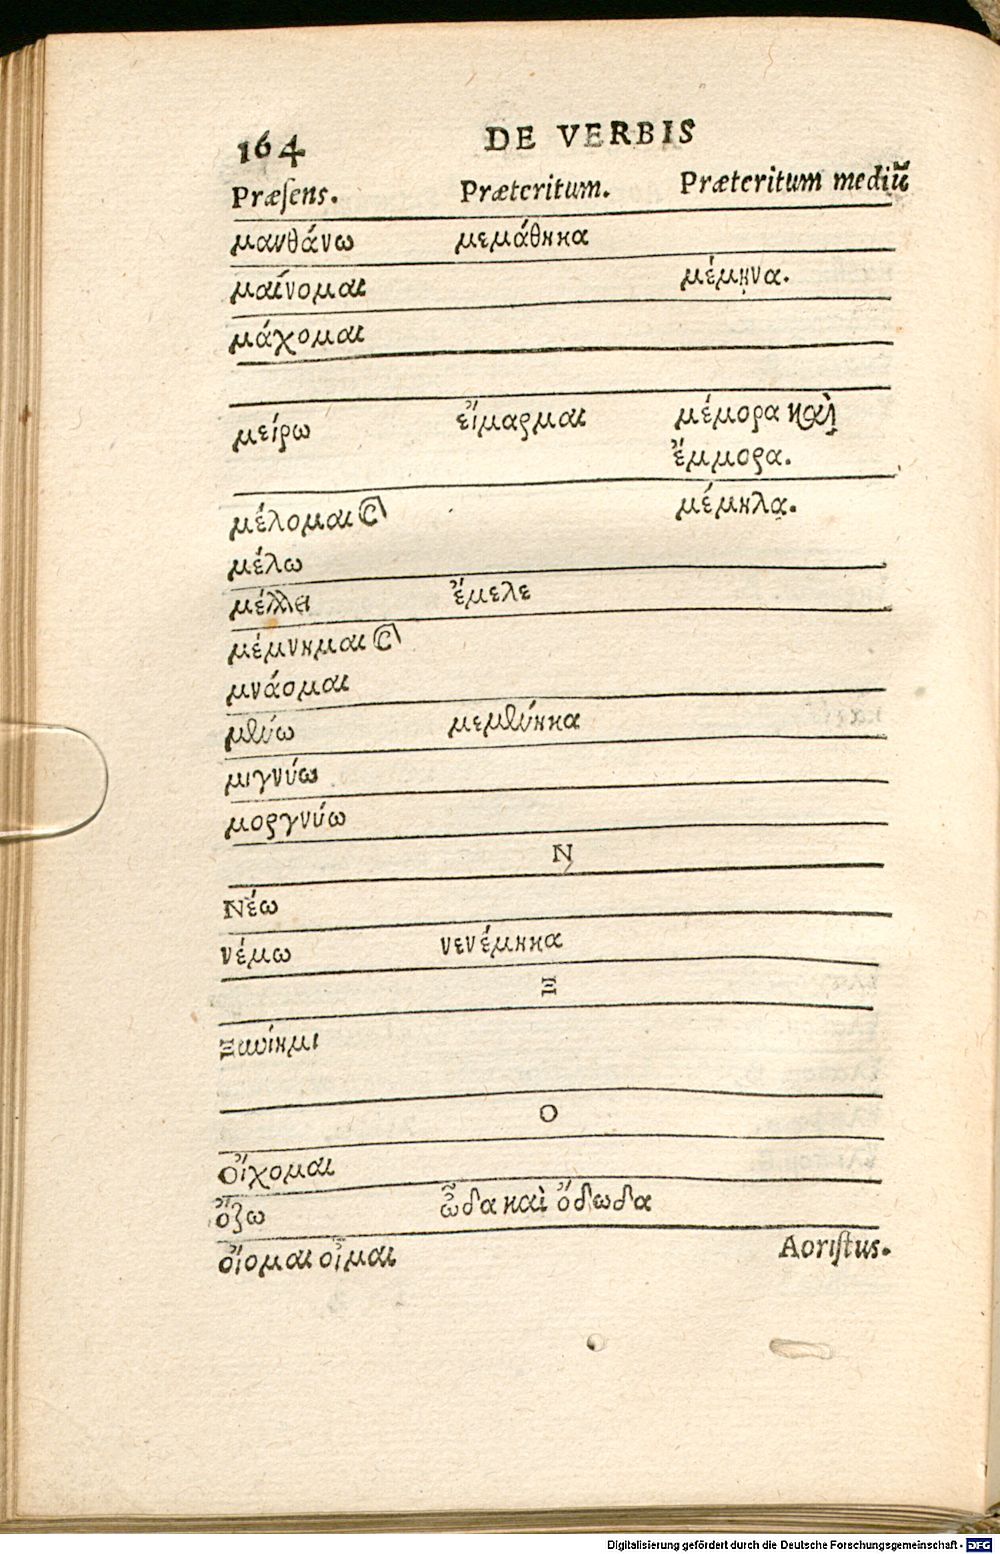 164 DE VERBIS
Præſens. Præteritum. Præteritum mediū
μανθάνω μεμάθηκα
μαίνομαι μέμηνα.
μάχομαι
μείρω εἵμαρμαι μέμορα καὶ
ἔμμορα.
μέλομαι καὶ μέμηλα.
μέλω
μέλλει ἔμελε
μέμνημαι καὶ
μνάομαι
μεθύω μεμεθύηκα
μιγνύω
μοργνύω
Ν
Νέω
νέμω νενέμηκα
Ξ
Ο
Οἴχομαι
ὄζω ὦδα καὶ ὄδωδα
οἴομαι οἶμαι Aoriſtus.
Digitalisierung gefördert durch die Deutsche Forschungsgemeinschaft - DFG